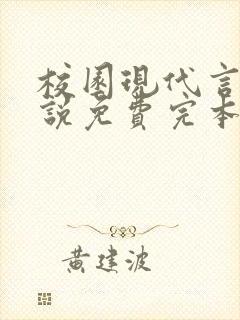 校園現代言
說免費完本
黃建波